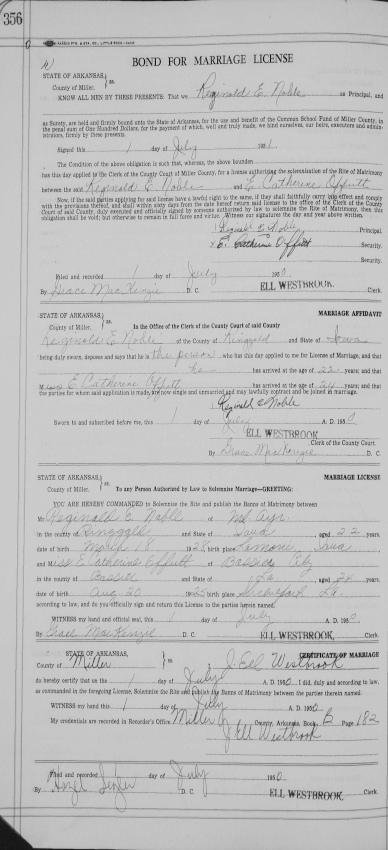 356
BOND FOR MARRIAGE LICENSE
STATE OF ARKANSAS,
County of Miller. } ss.
KNOW ALL MEN BY THESE PRESENTS: That we Reginald E. Noble as Principal, and
as Surety, are held and firmly bound unto the State of Arkansas, for the use and benefit of the Common School Fund of Miller County, in
the penal sum of One Hundred Dollars, for the payment of which, well and truly made, we bind ourselves, our heirs, executors and admin-
istrators, firmly by these presents.
Signed this 1 day of July 195
The Condition of the above obligation is such that, whereas, the above bounden
has this day applied to the Clerk of the County Court of Miller County, for a license authorizing the solemnization of the Rite of Matrimony
between the said Reginald E. Noble and E. Catherine Offutt
Now, if the said parties applying for said license have a lawful right to the same, if they shall faithfully carry into effect and comply
with the provisions thereof, and shall within sixty days from the date hereof return said license to the office of the Clerk of the County
Court of said County, duly executed and officially signed by someone authorized by law to solemnize the Rite of Matrimony, then this
obligation shall be void; but otherwise to remain in full force and virtue. Witness our signatures the day and year above written.
Reginald E. Noble Principal.
E. Catherine Offutt Security.
Security.
Filed and recorded 1 day of July 1950.
By Grace MacKenzie D. C. ELL WESTBROOK, Clerk.
STATE OF ARKANSAS, MARRIAGE AFFIDAVIT
County of Miller. } ss. In the Office of the Clerk of the County Court of said County
Reginald E. Noble of the County of Ringgold and State of Iowa
being duly sworn, deposes and says that he is the person who has this day applied to me for License of Marriage, and that
he has arrived at the age of 22 years; and that
Miss E Catherine Offutt has arrived at the age of 24 years; and that
the parties for whom said application is made, are now single and unmarried and may lawfully contract and be joined in marriage.
Reginald E Noble
Sworn to and subscribed before me, this 1 day of July A. D. 1950
ELL WESTBROOK
Clerk of the County Court.
By Grace MacKenzie D. C.
STATE OF ARKANSAS, MARRIAGE LICENSE
County of Miller. } ss. To any Person Authorized by Law to Solemnize Marriage—GREETING:
YOU ARE HEREBY COMMANDED to Solemnize the Rite and publish the Banns of Matrimony between
Mr. Reginald E. Noble of Mt Ayr
in the county of Ringgold and State of Iowa aged 22 years,
date of birth March 18 1928 birth place Lamoni Iowa
and Miss E Catherine Offutt of Bossier City
in the county of Bossier and State of La. aged 24 years,
date of birth Aug 20 1925 birth place Shreveport La.
according to law, and do you officially sign and return this License to the parties herein named.
WITNESS my hand and official seal, this 1 day of July A. D. 1950
By Grace MacKenzie D. C. ELL WESTBROOK, Clerk.
STATE OF ARKANSAS, CERTIFICATE OF MARRIAGE
County of Miller } ss. I, J. Ell Westbrook
do hereby certify that on the 1 day of July A. D. 1950. I did, duly and according to law,
as commanded in the foregoing License, Solemnize the Rite and publish the Banns of Matrimony between the parties therein named.
WITNESS my hand this 1 day of July A. D. 1950
My credentials are recorded in Recorder's Office Miller Co County, Arkansas, Book B Page 182
J Ell Westbrook
Filed and recorded 1 day of July 1950.
By Hazel D. C. ELL WESTBROOK, Clerk.